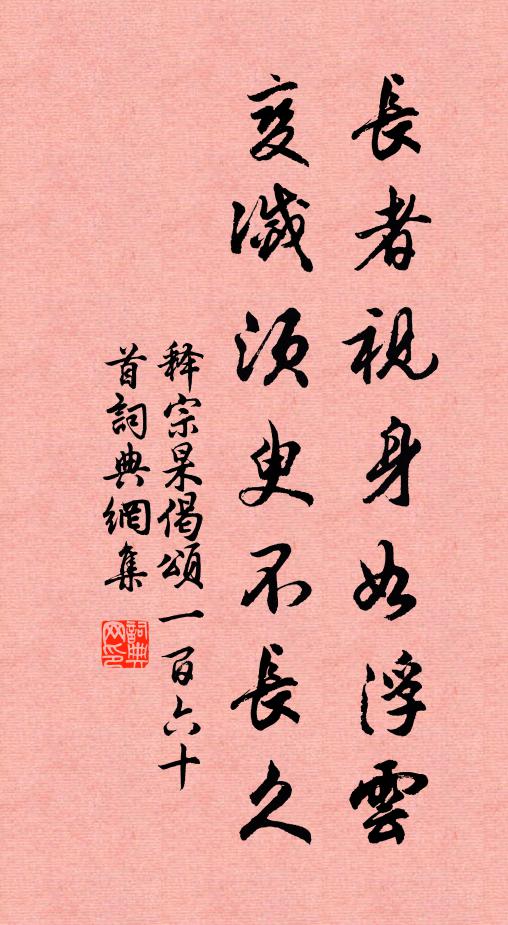 長者視身如浮雲
變滅須臾不長久
释宗杲偈頌一百六十
首詞典網集
詞典網印